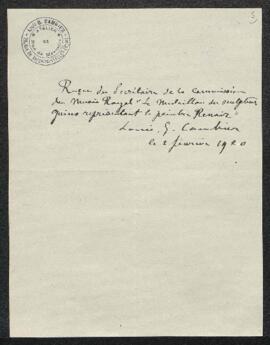 5
Reçu du Secrétaire de la Commission
du Musée Royal "Le Médaillon du sculpteur
représentant le peintre Renoir"
Louis G. Cambier
le 2 février 1920